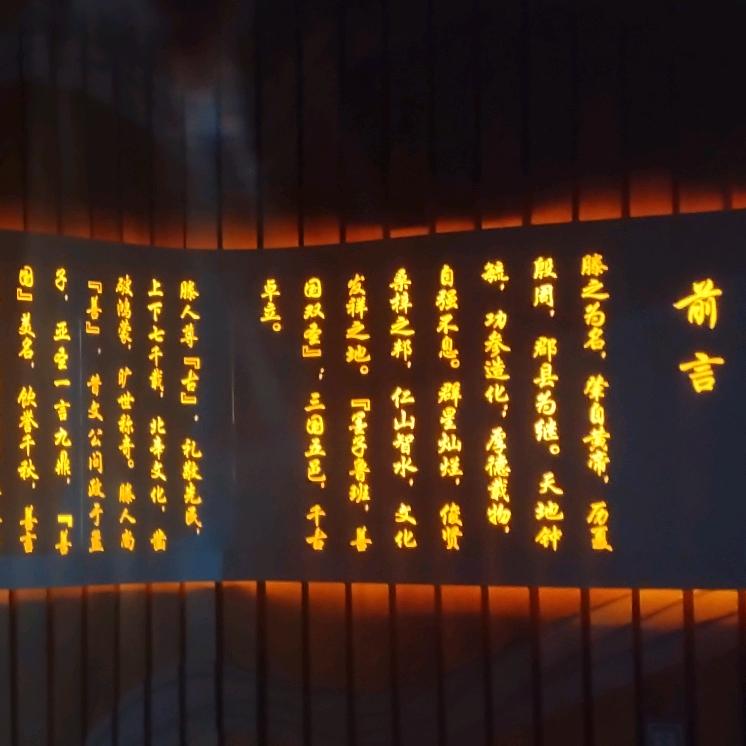 前言
滕之为名，肇自黄帝，历夏
殷周，郡县为继。天地钟
毓，功参造化；厚德载物，
自强不息。群星灿烂，俊贤
桑梓之邦，仁山智水，文化
发祥之地。『墨子鲁班，善
国双圣』；三国五邑，千古
卓立。
滕人尊『古』，礼敬先民，
上下七千载，北辛文化，凿
破鸿蒙，旷世称奇。滕人尚
『善』，昔文公问政于孟
子，亚圣一言九鼎，『善
国』美名，饮誉千秋，善言